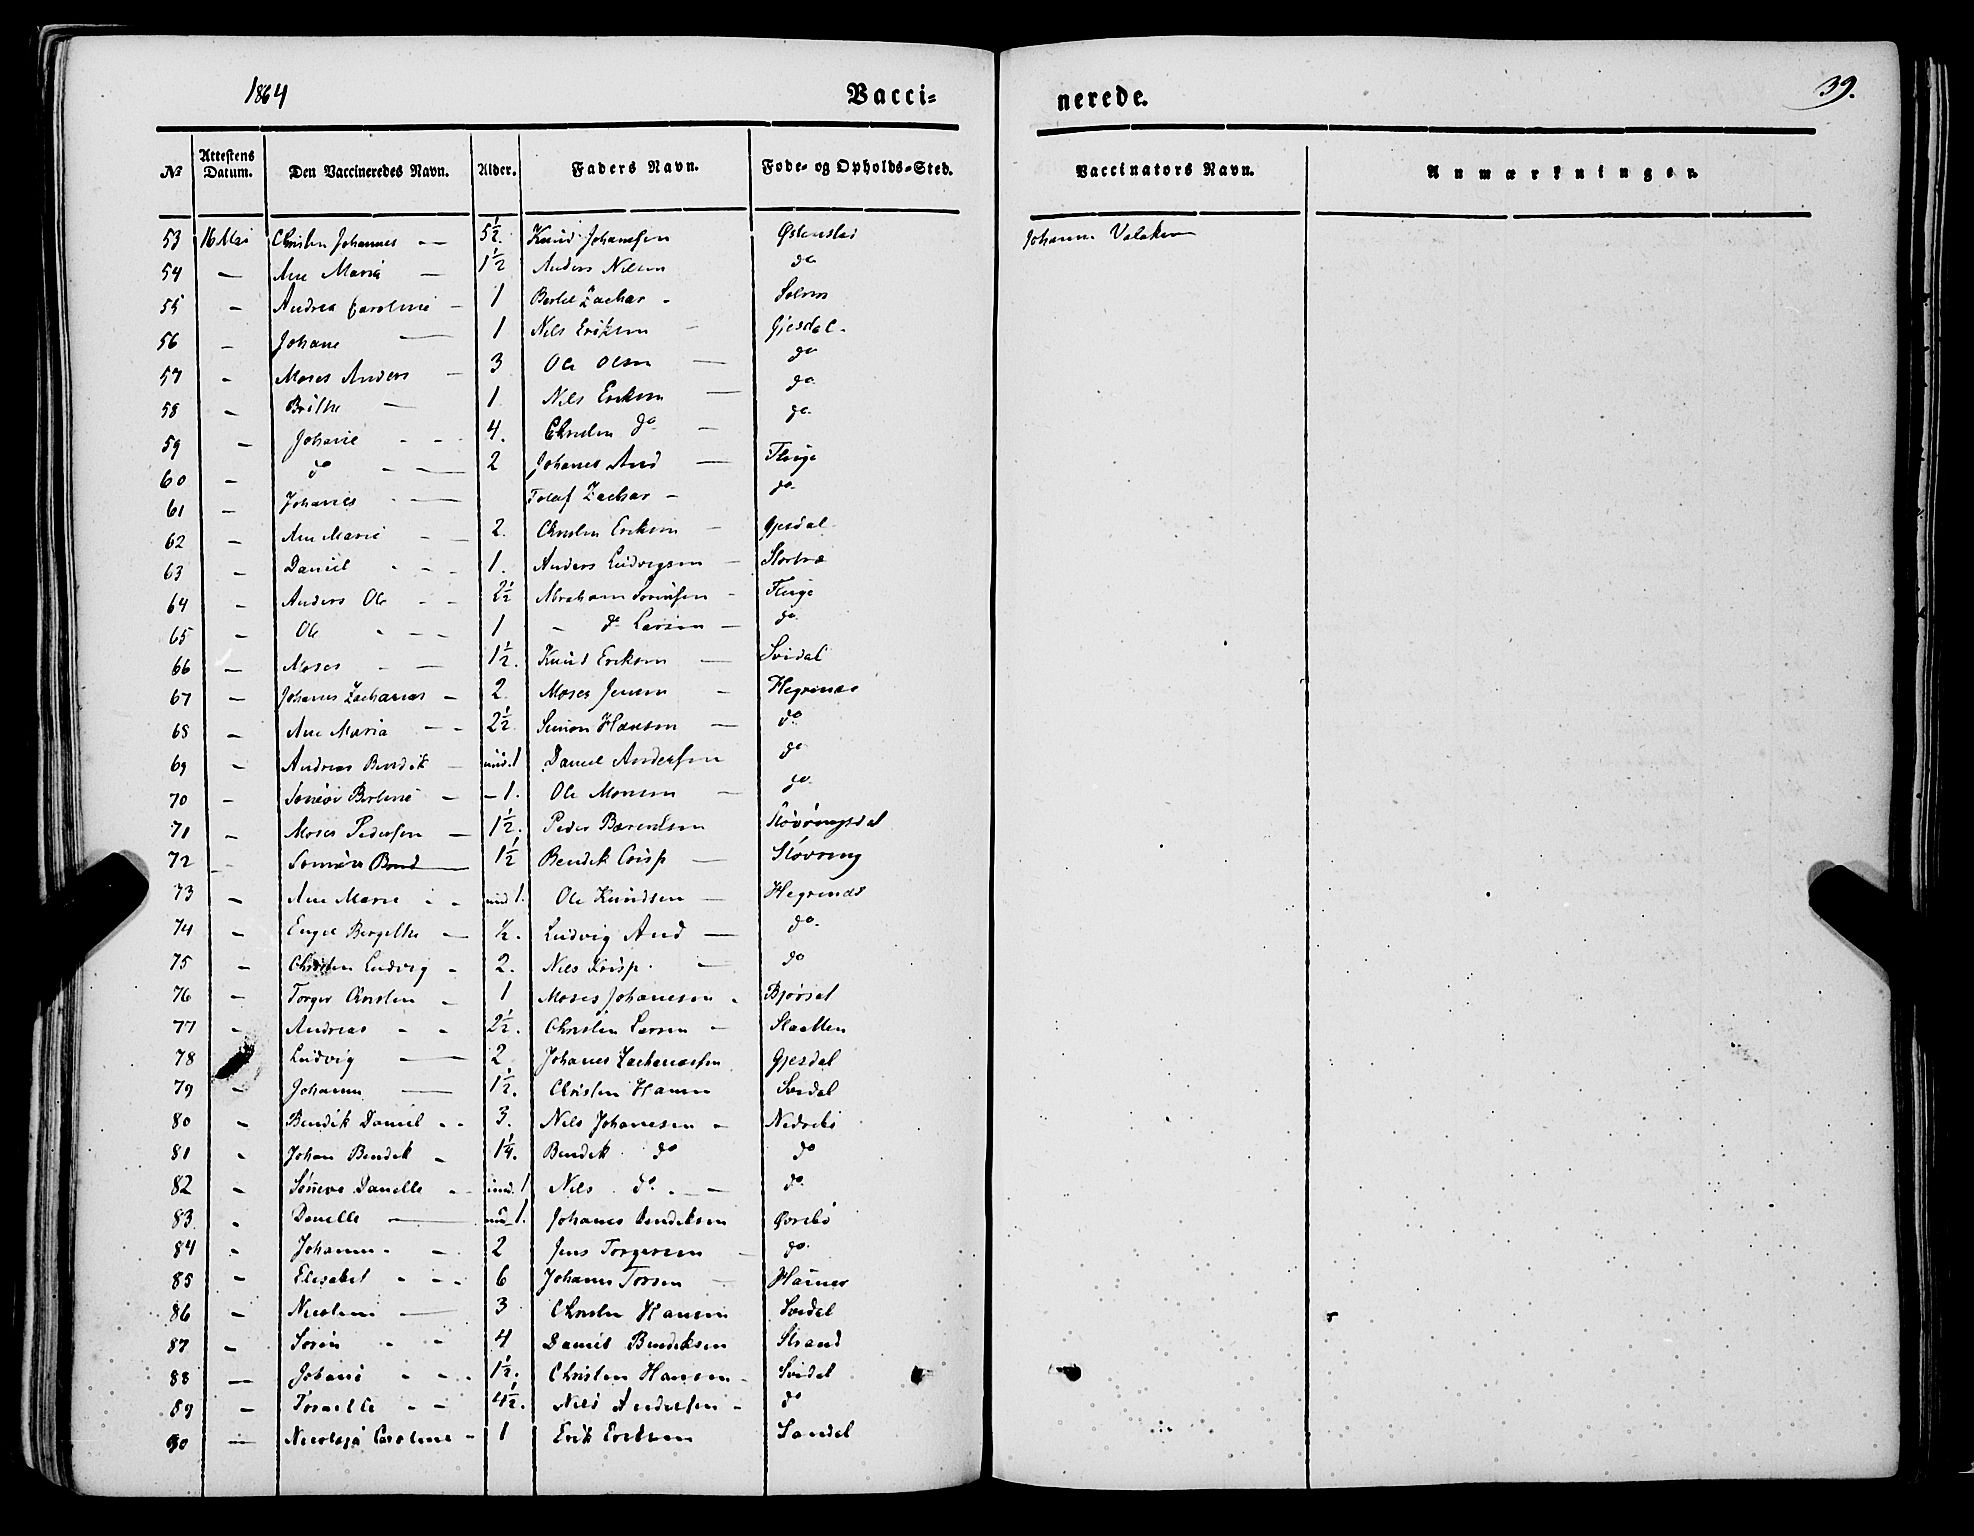 1864
Vacci=
nerede.
39.
No
Attestens Datum.
Den Vaccineredes Navn.
Alder.
Faders Navn.
Føde- og Opholds-Sted.
Vaccinators Navn.
Anmærkninger.
53 16 Mai Christen Johannes - - 5½. Knud Johansen Østenstad Johannes
54 — Ane Maria — 1½ Anders Nilsen do
55 - Andrea Caroline - 1 Bertel Zachar - Solvm
56 - Johane — 1 Nils Eriksen - Gjesdal -
57 - Moses Anders - 3 Ole Olsen — do
58 - Brithe — 1. Nils Eriksen — do.
59 - Johane - - - 4. Christen do - do.
60 - do - - — 2 Johanes And — Fluge
61 - Johanes - — Tolaf Zachar - do.
62 - Ane Marie - — 2. Christen Eriksen — Gjesdal
63 - Daniel - - - 1. Anders Ludvigsen —
64 - Anders Ole - - 2½ Abraham — Fluge
65 - Ole - - - 1 - do Larsen — do.
66 — Moses - — 1½. Knud Eriksen — Svidal
67 - Johanes Zacharias - 2. Moses Jensen — Hegrenæs
68 - Ane Maria - - 2½ Simon Hansen — do
69 - Andreas Bendik — und. 1 Daniel Andersen do
70 - Berline — - 1. Ole Monsen — do.
71 - Moses Pedersen — 1½. Peder Berentsen Støvringsdal
72 - 1½ Bendik Crisp — Støvring
73 - Ane Marie - - und 1. Ole Knudsen — Hegrenæs
74 - Engel Bergithe — ½. Ludvig And — do.
75 - Christen Ludvig - 2. Nils Krisp. — do
76 - Torger Christen - 1 Moses Johanesen - Bjørset
77 - Andreas - - 2½. Christen Larsen — Slaatten
78 Ludvig — 2 Johanes Zachariassen Gjesdal
79 - Johanne — 1½. Christen Hansen Svidal
80 - Bendik Daniel - - 3. Nils Johanesen - Nedrebø
81 - Johan Bendik - 1¼. Bendik do do
82 - Søneva Danelle - - und. 1 Nils - do - — do.
83 - Danelle — und. 1. Johanes Bendiksen Øvrebø
84 - Johanne - - 2 Jens Torgersen — do.
85 - Elisabet - - - 6 Johanes Torsen —
86 - Nicoline — 3 Christen Hansen Svidal
87 - Soren - - 4 Daniel Bendiksen Strand
88 — Johane - - - 1½. Christen Hansen - Svidal
89 - - - 4½. Nils Andersen - do
90 — Nicolaja Caroline - 1 Erik Eriksen Sandal